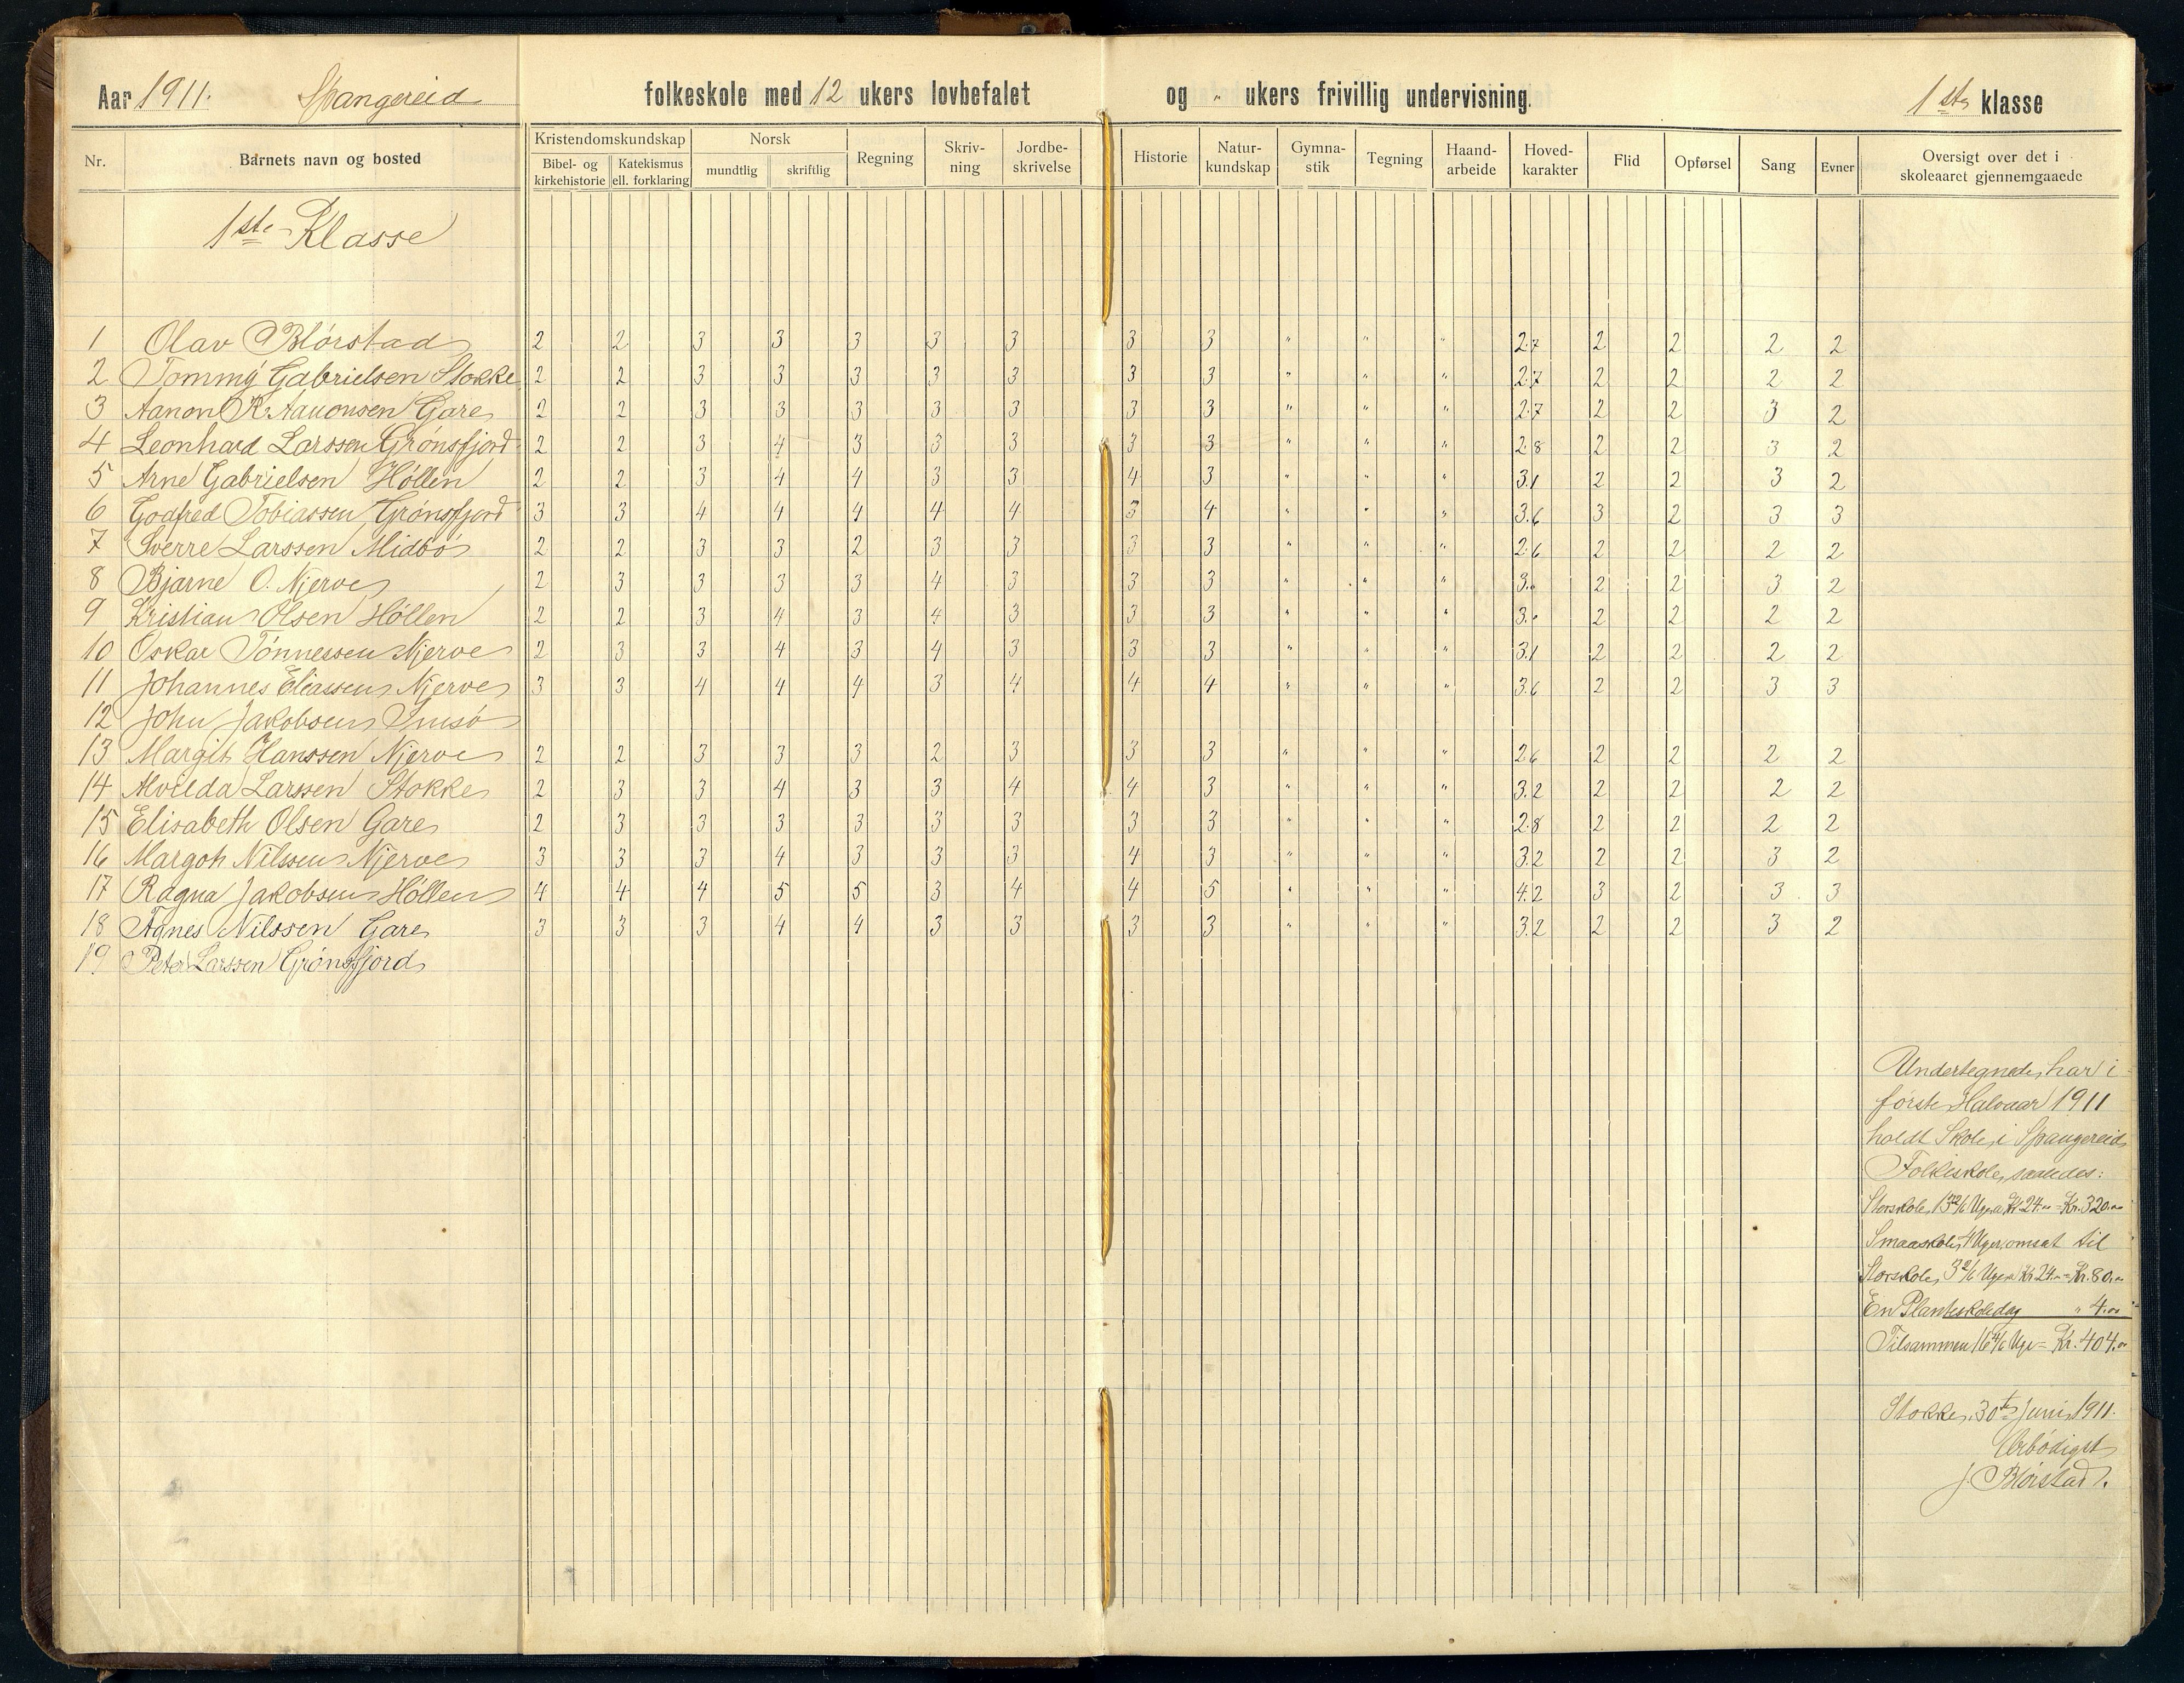 Aar 1911. Spangereid folkeskole med 12 ukers lovbefalet og " ukers frivillig undervisning. 1ste klasse
Nr. Barnets navn og bosted Kristendomskundskap Bibel- og kirkehistorie Katekismus ell. forklaring Norsk mundtlig skriftlig Regning Skriv-ning Jordbe-skrivelse Historie Natur-kundskap Gymna-stik Tegning Haand-arbeide Hoved-karakter Flid Opførsel Sang Evner Oversigt over det i skoleaaret gjennemgaaede
1ste Klasse
1 Olav Blørstad 2 2 3 3 3 3 3 3 3 " " " 2.7 2 2 2 2
2 Tommy Gabrielsen Stokke 2 2 3 3 3 3 3 3 3 " " " 2.7 2 2 2 2
3 Aanon K. Aanonsen Gare 2 2 3 3 3 3 3 3 3 " " " 2.7 2 2 3 2
4 Leonhard Larssen Grønsfjord 2 2 3 4 3 3 3 3 3 " " " 2.8 2 2 3 2
5 Arne Gabrielsen Høllen 2 2 3 4 4 3 3 4 3 " " " 3.1 2 2 3 2
6 Godfred Tobiassen Grønsfjord 3 3 4 4 4 4 4 3 4 " " " 3.6 3 2 3 3
7 Sverre Larssen Midbø 2 2 3 3 2 3 3 3 3 " " " 2.6 2 2 2 2
8 Bjarne O. Njerve 2 3 3 3 3 4 3 3 3 " " " 3.0 2 2 3 2
9 Kristian Olsen Høllen 2 2 3 4 3 4 3 3 3 " " " 3.0 2 2 2 2
10 Oskar Tønnessen Njerve 2 3 3 4 3 4 3 3 3 " " " 3.1 2 2 2 2
11 Johannes Eliassen Njerve 3 3 4 4 4 3 4 4 4 " " " 3.6 2 2 3 3
12 John Jakobsen
13 Margit Hanssen Njerve 2 2 3 3 3 2 3 3 3 " " " 2.6 2 2 2 2
14 Alvilda Larssen Stokke 2 3 3 4 3 3 4 4 3 " " " 3.2 2 2 2 2
15 Elisabeth Olsen Gare 2 3 3 3 3 3 3 3 3 " " " 2.8 2 2 2 2
16 Margot Nilssen Njerve 3 3 3 4 3 3 3 4 3 " " " 3.2 2 2 3 2
17 Ragna Jakobsen Høllen 4 4 4 5 5 3 4 4 5 " " " 4.2 3 2 3 3
18 Agnes Nilssen Gare 3 3 3 4 4 3 3 3 3 " " " 3.2 2 2 3 2
19 Peter Larssen Grønsfjord
Undertegnede har i
første Halvaar 1911
holdt Skole i Spangereid
Folkeskole saaledes:
Storskole 13 2/6 Uger a Kr. 24.00 = Kr. 320.00
Smaaskole 4 Uger omsat til
Storskole, 3 2/6 Uger a Kr 24.00 = Kr. 80.00
En Planteskoledag " 4.00
Tilsammen 16 4/6 Uge = Kr. 404.00
Stokke, 30te Juni 1911.
Ærbødigst
J. Blørstad.